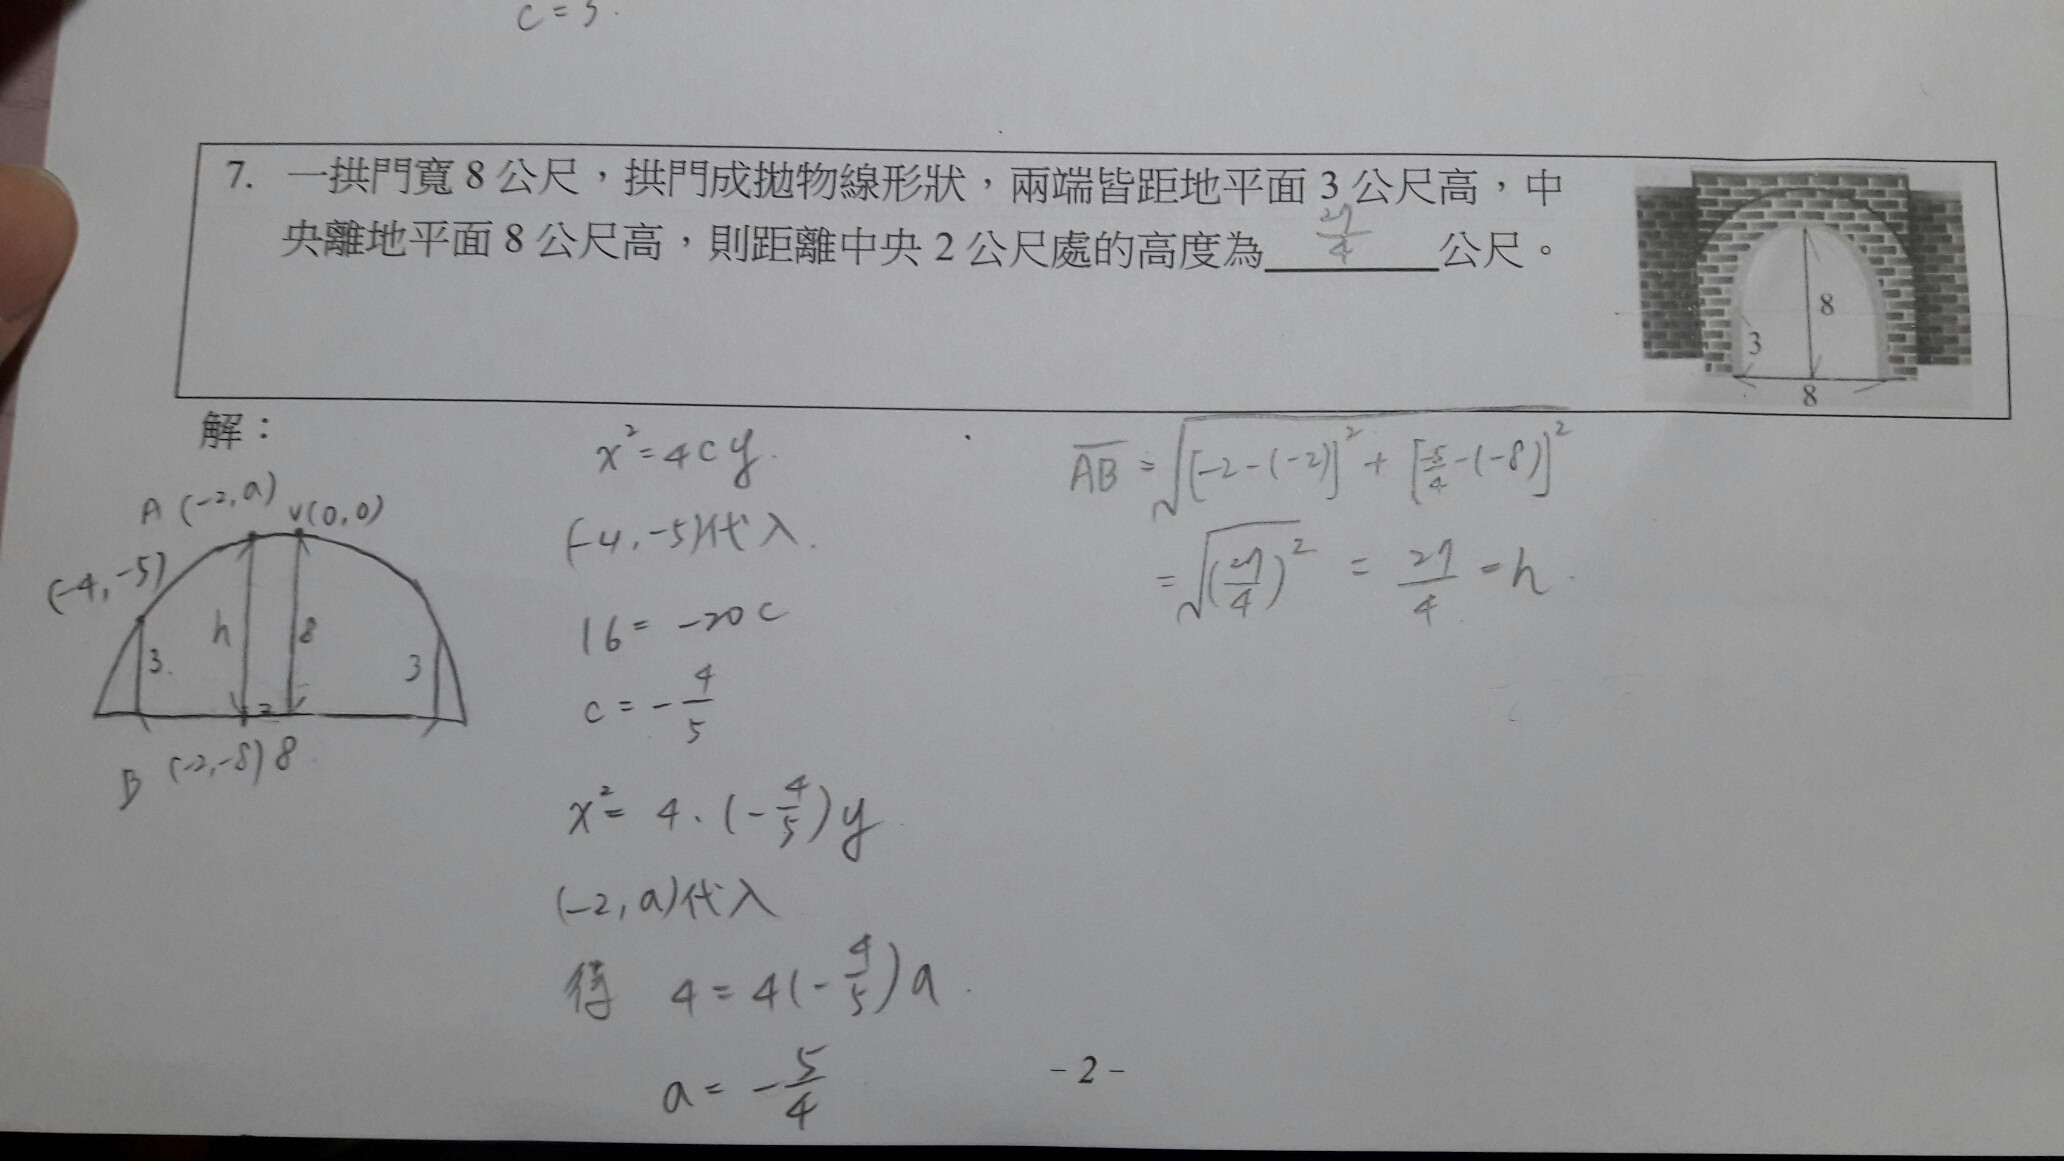 c=5.
7. 一拱門寬 8 公尺，拱門成拋物線形狀，兩端皆距地平面 3 公尺高，中
央離地平面 8 公尺高，則距離中央 2 公尺處的高度為 27/4 公尺。
8
3
8
解：
A (-2,a) V(0,0)
(-4,-5)
h
8
3.
3
2
B (-2,-8) 8
x²=4cy.
(-4,-5)代入.
16=-20c
c=-4/5
x²=4·(-4/5)y
(-2,a)代入
得 4=4(-4/5)a.
a=-5/4
AB=√[-2-(-2)]²+[-5/4-(-8)]²
=√(27/4)²=27/4=h.
-2-